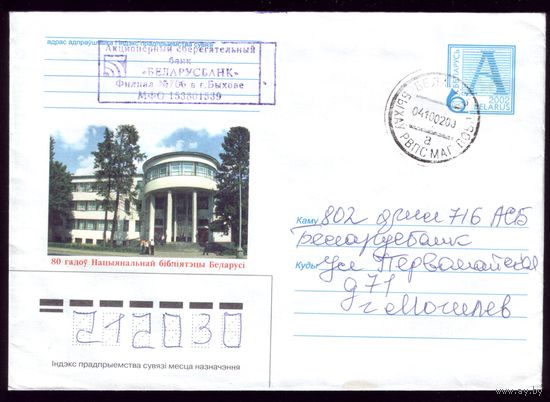 адрас адпраўшчыка і індэкс прадпрыемства сувязі
Акционерный сберегательный
банк
«БЕЛАРУСБАНК»
Филиал №706 в г.Быхове
МФО 153801539
БЕЛАРУСЬ
A
2002
BELARUS
БЫХАЎ РВПС МАГ.
а
80 гадоў Нацыянальнай бібліятэцы Беларусі
Каму 802 716 АСБ
Беларусбанк
Куды ул Первомайская
д 71
г Могилев
212030
Індэкс прадпрыемства сувязі месца назначэння
www.ay.by